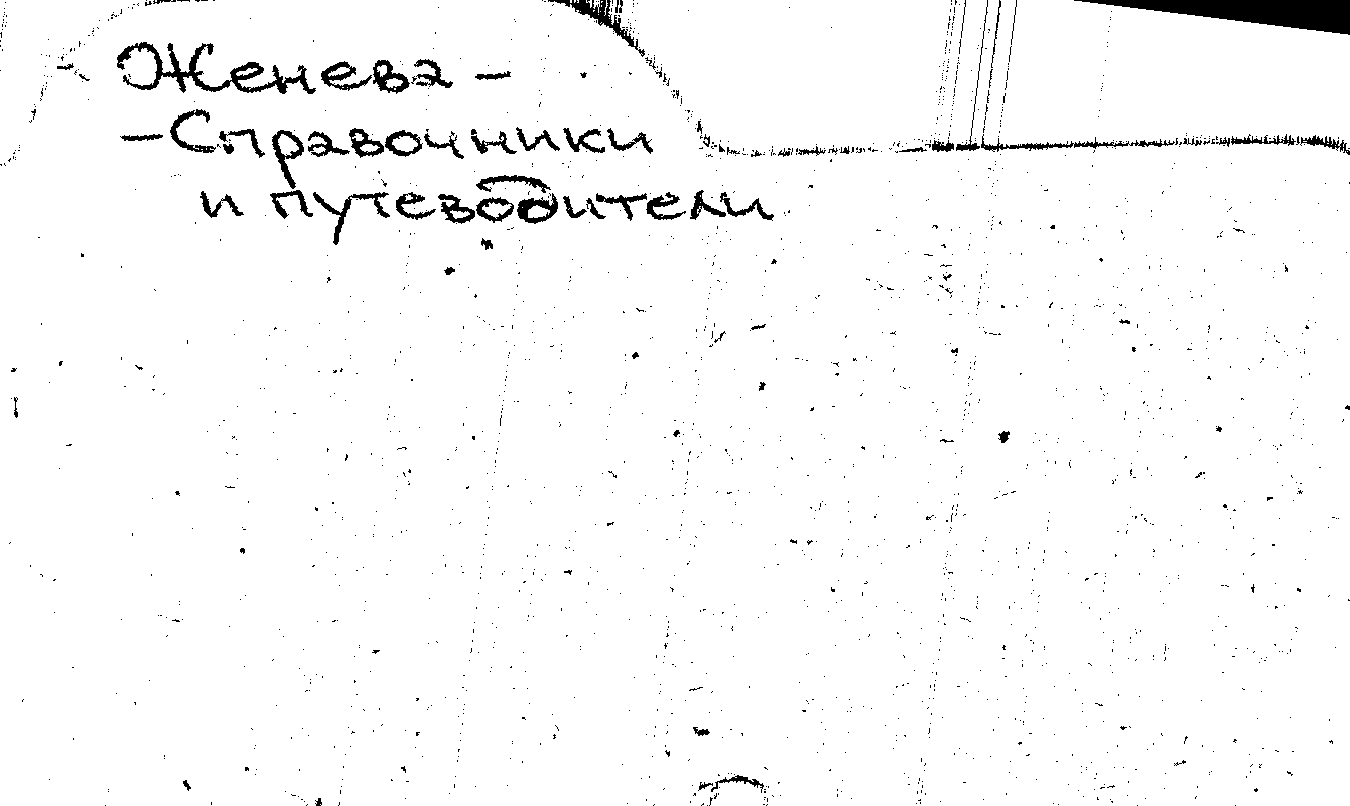 Женева -
- Справочники
и путеводители